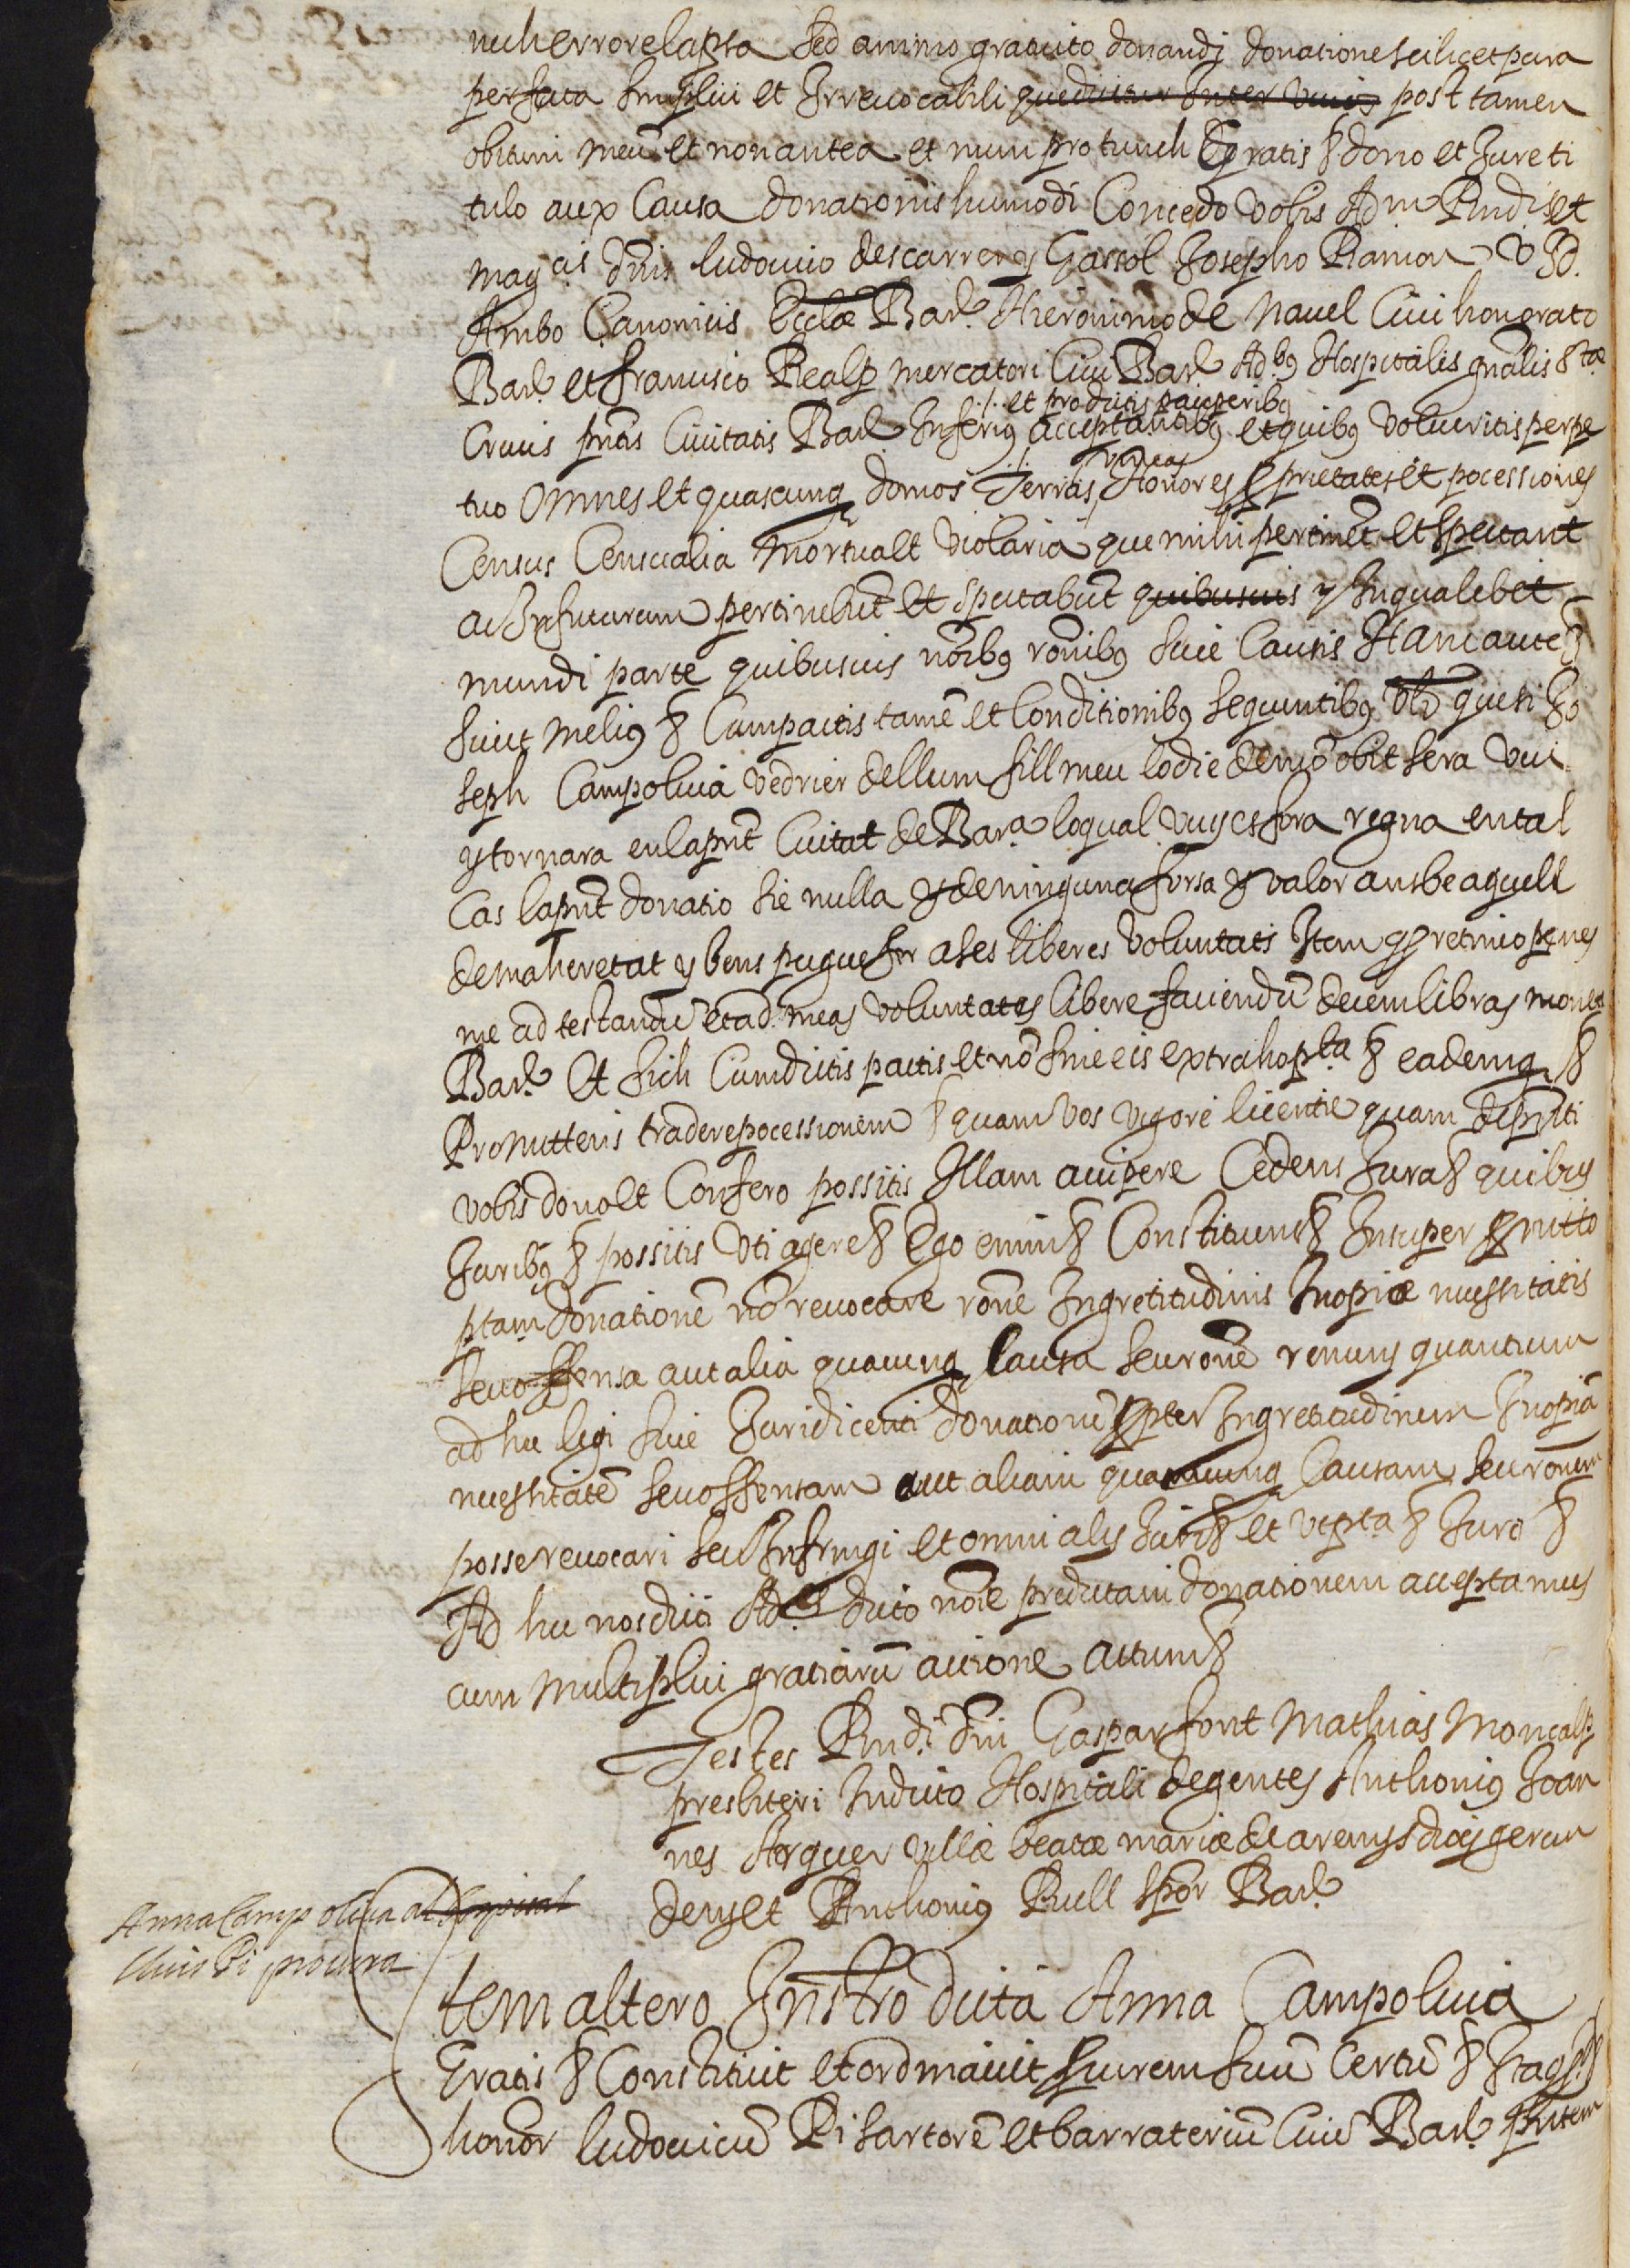 nech errore lapsa sed animo gratuito donandi donatione scilicet pura
perfecta simplici et Irrevocabili que dicitur Inter vivos post tamen
obitum meū et non antea et nunc pro tunch Gratis & dono et Jure ti
tulo aux Causa donationis humodi Concedo vobis Adm Rndis et
magcis dnis ludovico descarrer y Gassol Josepho Ramon V Jd.
Ambo Canonicis Ecclæ Barne Hieronimo de Navel Civi honorato
Barne et francisco Realp mercatori Civi Barne Adbus Hospitalis gnalis Stæ
Crucis pntis Civitatis Barne Inferius ./. et predictis pauperibus acceptantibus et quibus volueritis perpe
tuo Omnes et quascunq domos Terras, vineas Honores proprietates et pocessiones
Census Censualia mortua et violaria que mihi pertinēt et spectant
ac In futurum pertinebūt et spectabūt quibusvis y In qualibet
mundi parte quibusvis noībus rōnibus sive Causis Hanc autē &
sicut melius & Cum pactis tamē et Conditionibus sequentibus vld que si Jo
seph Campoliva vedrier de llum fill meu lo die de mō obit sera viu
y tornara en la pnt Ciutat de Bara lo qual vuy es fora regna en tal
Cas la pnt donatio sie nulla y de ninguna forsa y valor ans be aquell
de ma heretat y bens pugue fer a ses liberes voluntats Item q retineo penes
me ad testandū et ad meas voluntates libere faciendū decem libras moneta
Barne Et sich Cum dictis pactis et nō sine eis extraho pta & eademq &
Promittens tradere pocessionem & quam vos vigore licentie quam de pnti
vobis dono et Confero possitis Illam accipere Cedens Jura & quibus
Juribus & possitis uti agere & Ego enim & Constituens & Insuper promitto
ptam donationē nō revocare rōne Ingretitudinis Inopiæ necessitatis
seu offensa aut alia quacunq Causa seu rōne renuns quantum
ad hec legi sive Juri dicenti donationē propter Ingretitudinem Inopiā
necessitatē seu offensam aut aliam quamcunq Causam seu rōnem
posse revocari seu Infringi et omni alii Juri & et ut pta & Juro &
Ad hec nos dicti Ades dicto noīe predictam donationem acceptamus
cum multiplici gratiarū actione actum &
Testes Rndi. dni Gaspar font Mathias Moncalp
presbiteri In dicto Hospitali degentes Anthonius Joan
nes Arquer villæ beatæ mariæ de arenys diocis gerun
densis et Anthonius Rull Spōr Barne
Anna Campoliva al Hospital
lluis Pi procura
Item altero Instro dicta Anna Campoliva
Gratis & Constituit et ordinavit procurem suū Certū &
honor ludovicū Pi sartorē et barrateriū Civē Barne pntem